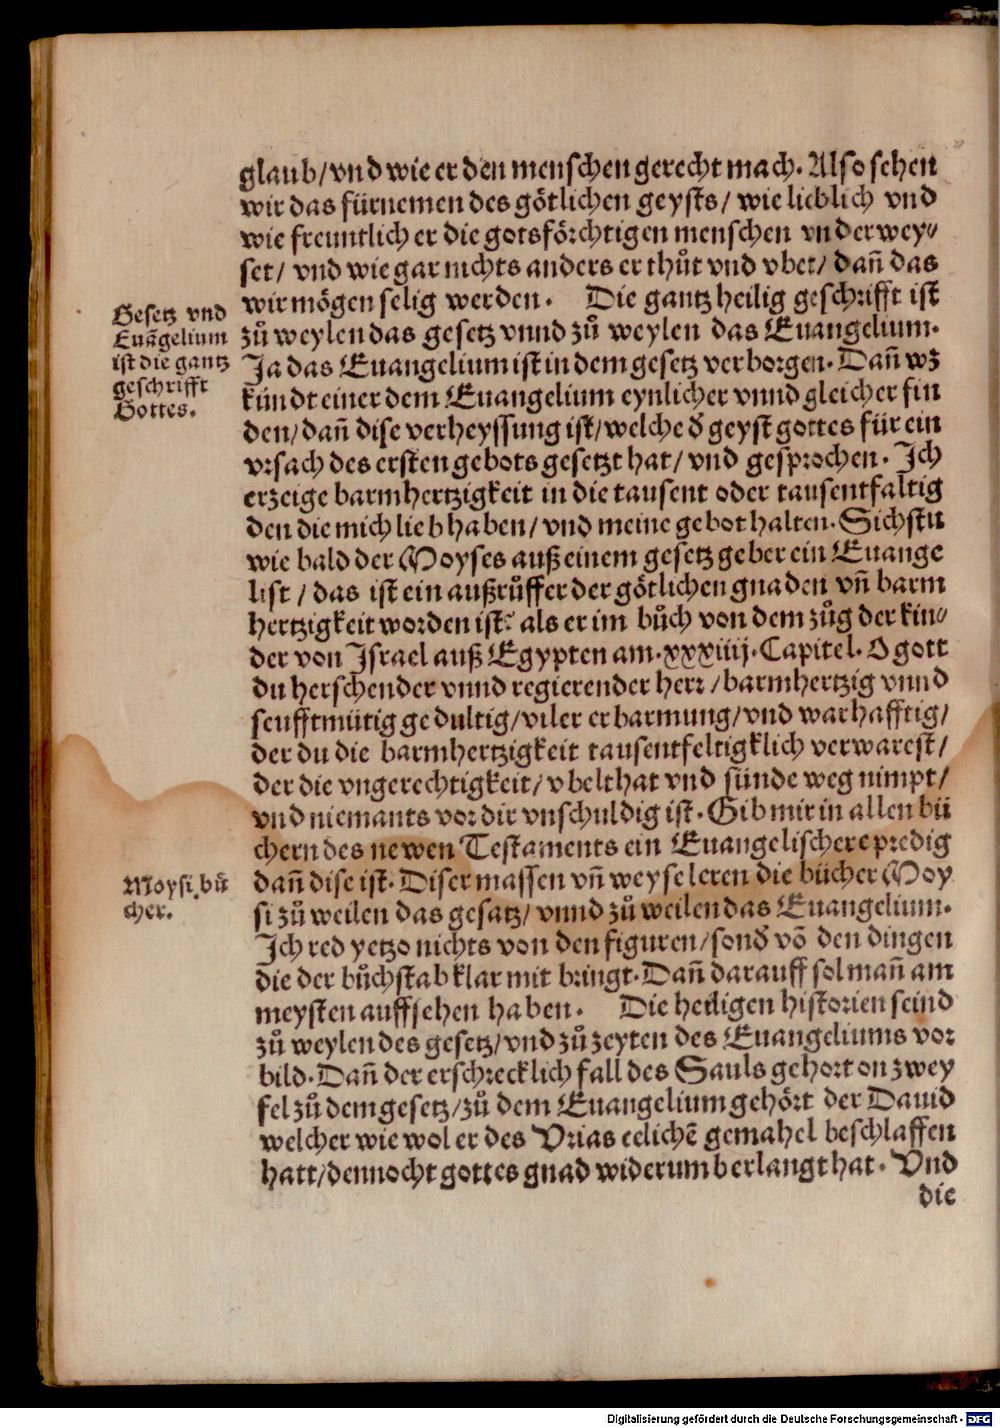 glaub/vnd wie er den menschen gerecht mach. Also sehen
wir das fürnemen des götlichen geysts/ wie lieblich vnd
wie freuntlich er die gotsförchtigen menschen vnderwey⸗
set/ vnd wie gar nichts anders er thůt vnd vbet/ dañ das
wir mögen selig werden. Die gantz heilig geschrifft ist
Gesetz vnd
Euãgelium
ist die gantz
geschrifft
Gottes.
zů weylen das gesetz vnnd zů weylen das Euangelium.
Ja das Euangelium ist in dem gesetz verborgen. Dañ wz
kündt einer dem Euangelium eynlicher vnnd gleicher fin
den/dañ dise verheyssung ist/welche d̃ geyst gottes für ein
vrsach des ersten gebots gesetzt hat/ vnd gesprochen. Ich
erzeige barmhertzigkeit in die tausent oder tausentfaltig
den die mich lieb haben/ vnd meine gebot halten. Sichstu
wie bald der Moyses auß einem gesetz geber ein Euange
list / das ist ein außrůffer der götlichen gnaden vñ barm
hertzigkeit worden ist? als er im bůch von dem zůg der kin⸗
der von Israel auß Egypten am.xxxiiij.Capitel. O gott
du herschender vnnd regierender herr /barmhertzig vnnd
seufftmütig gedultig/viler erbarmung/vnd warhafftig/
der du die barmhertzigkeit tausentfeltigklich verwarest/
der die vngerechtigkeit/vbelthat vnd sünde weg nimpt/
vnd niemants vor dir vnschuldig ist. Gib mir in allen bü
chern des newen Testaments ein Euangelischere predig
Moysi bü
cher.
dañ dise ist. Diser massen vñ weyse leren die bücher Moy
si zů weilen das gesatz/ vnnd zů weilen das Euangelium.
Ich red yetzo nichts von den figuren/sond̃ võ den dingen
die der bůchstab klar mit bringt. Dañ darauff sol mañ am
meysten auffsehen haben. Die heiligen historien seind
zů weylen des gesetz/vnd zů zeyten des Euangeliums vor
bild. Dañ der erschrecklich fall des Sauls gehort on zwey
fel zů dem gesetz/zů dem Euangelium gehört der Dauid
welcher wie wol er des Vrias eelichẽ gemahel beschlaffen
hatt/dennocht gottes gnad widerumb erlangt hat. Vnd
die
Digitalisierung gefördert durch die Deutsche Forschungsgemeinschaft - DFG